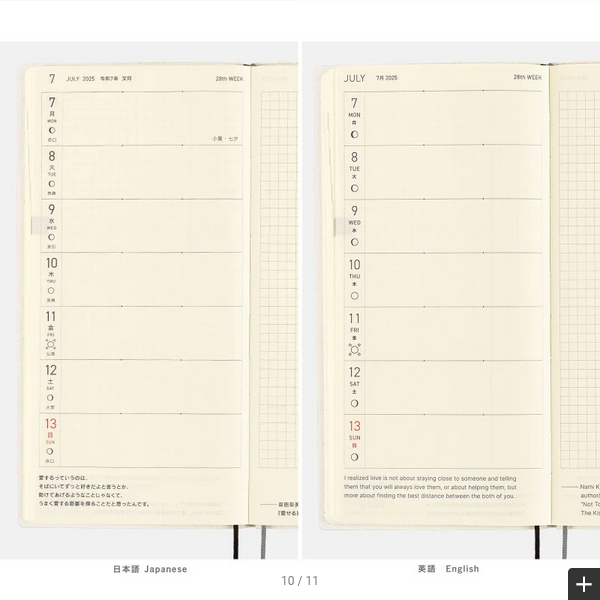 7 JULY 2025 令和7年 文月 28th WEEK
7
月
MON
赤口
小暑・七夕
8
火
TUE
先勝
9
水
WED
友引
10
木
THU
先負
11
金
FRI
仏滅
12
土
SAT
大安
13
日
SUN
赤口
愛するっていうのは、
そばにいてずっと好きだよと言うとか、
助けてあげるようなことじゃなくて、
うまく愛せる距離を探ることだと思ったんです。
JULY 7月 2025 28th WEEK
7
MON
月
8
TUE
火
9
WED
水
10
THU
木
11
FRI
金
12
SAT
土
13
SUN
日
I realized love is not about staying close to someone and telling
them that you will always love them, or about helping them, but
more about finding the best distance between the both of you.
Nami K
author/
"Not To
The Kis
日本語 Japanese
英語 English
10 / 11